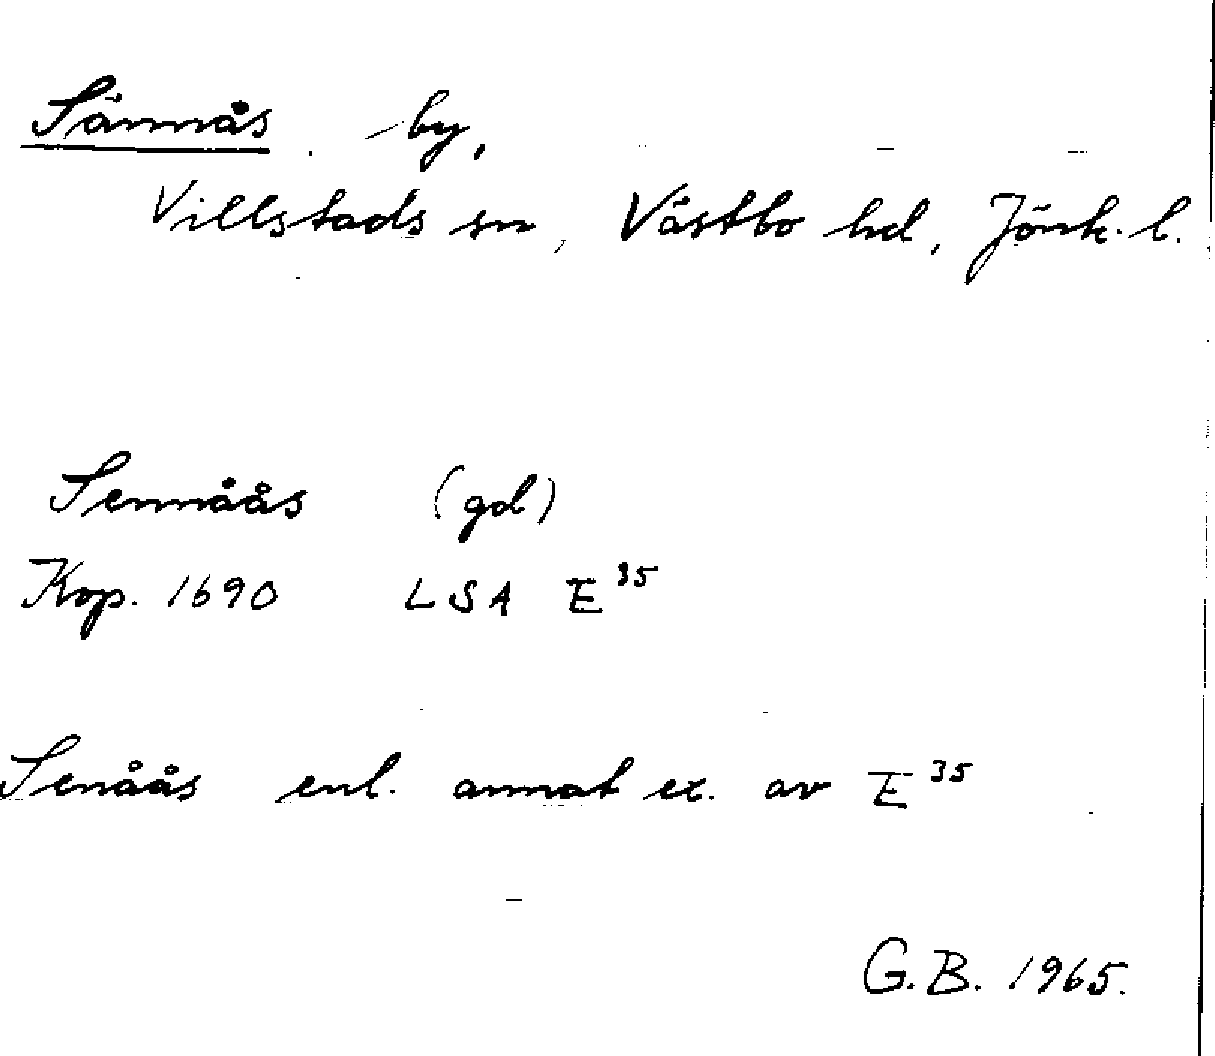 Sännås by,
Villstads sn, Västbo hd, Jönk. l.
Sennåås (gd)
Kop. 1690 LSA E 35
Senåås enl. annat ex. av E 35
G.B. 1965.